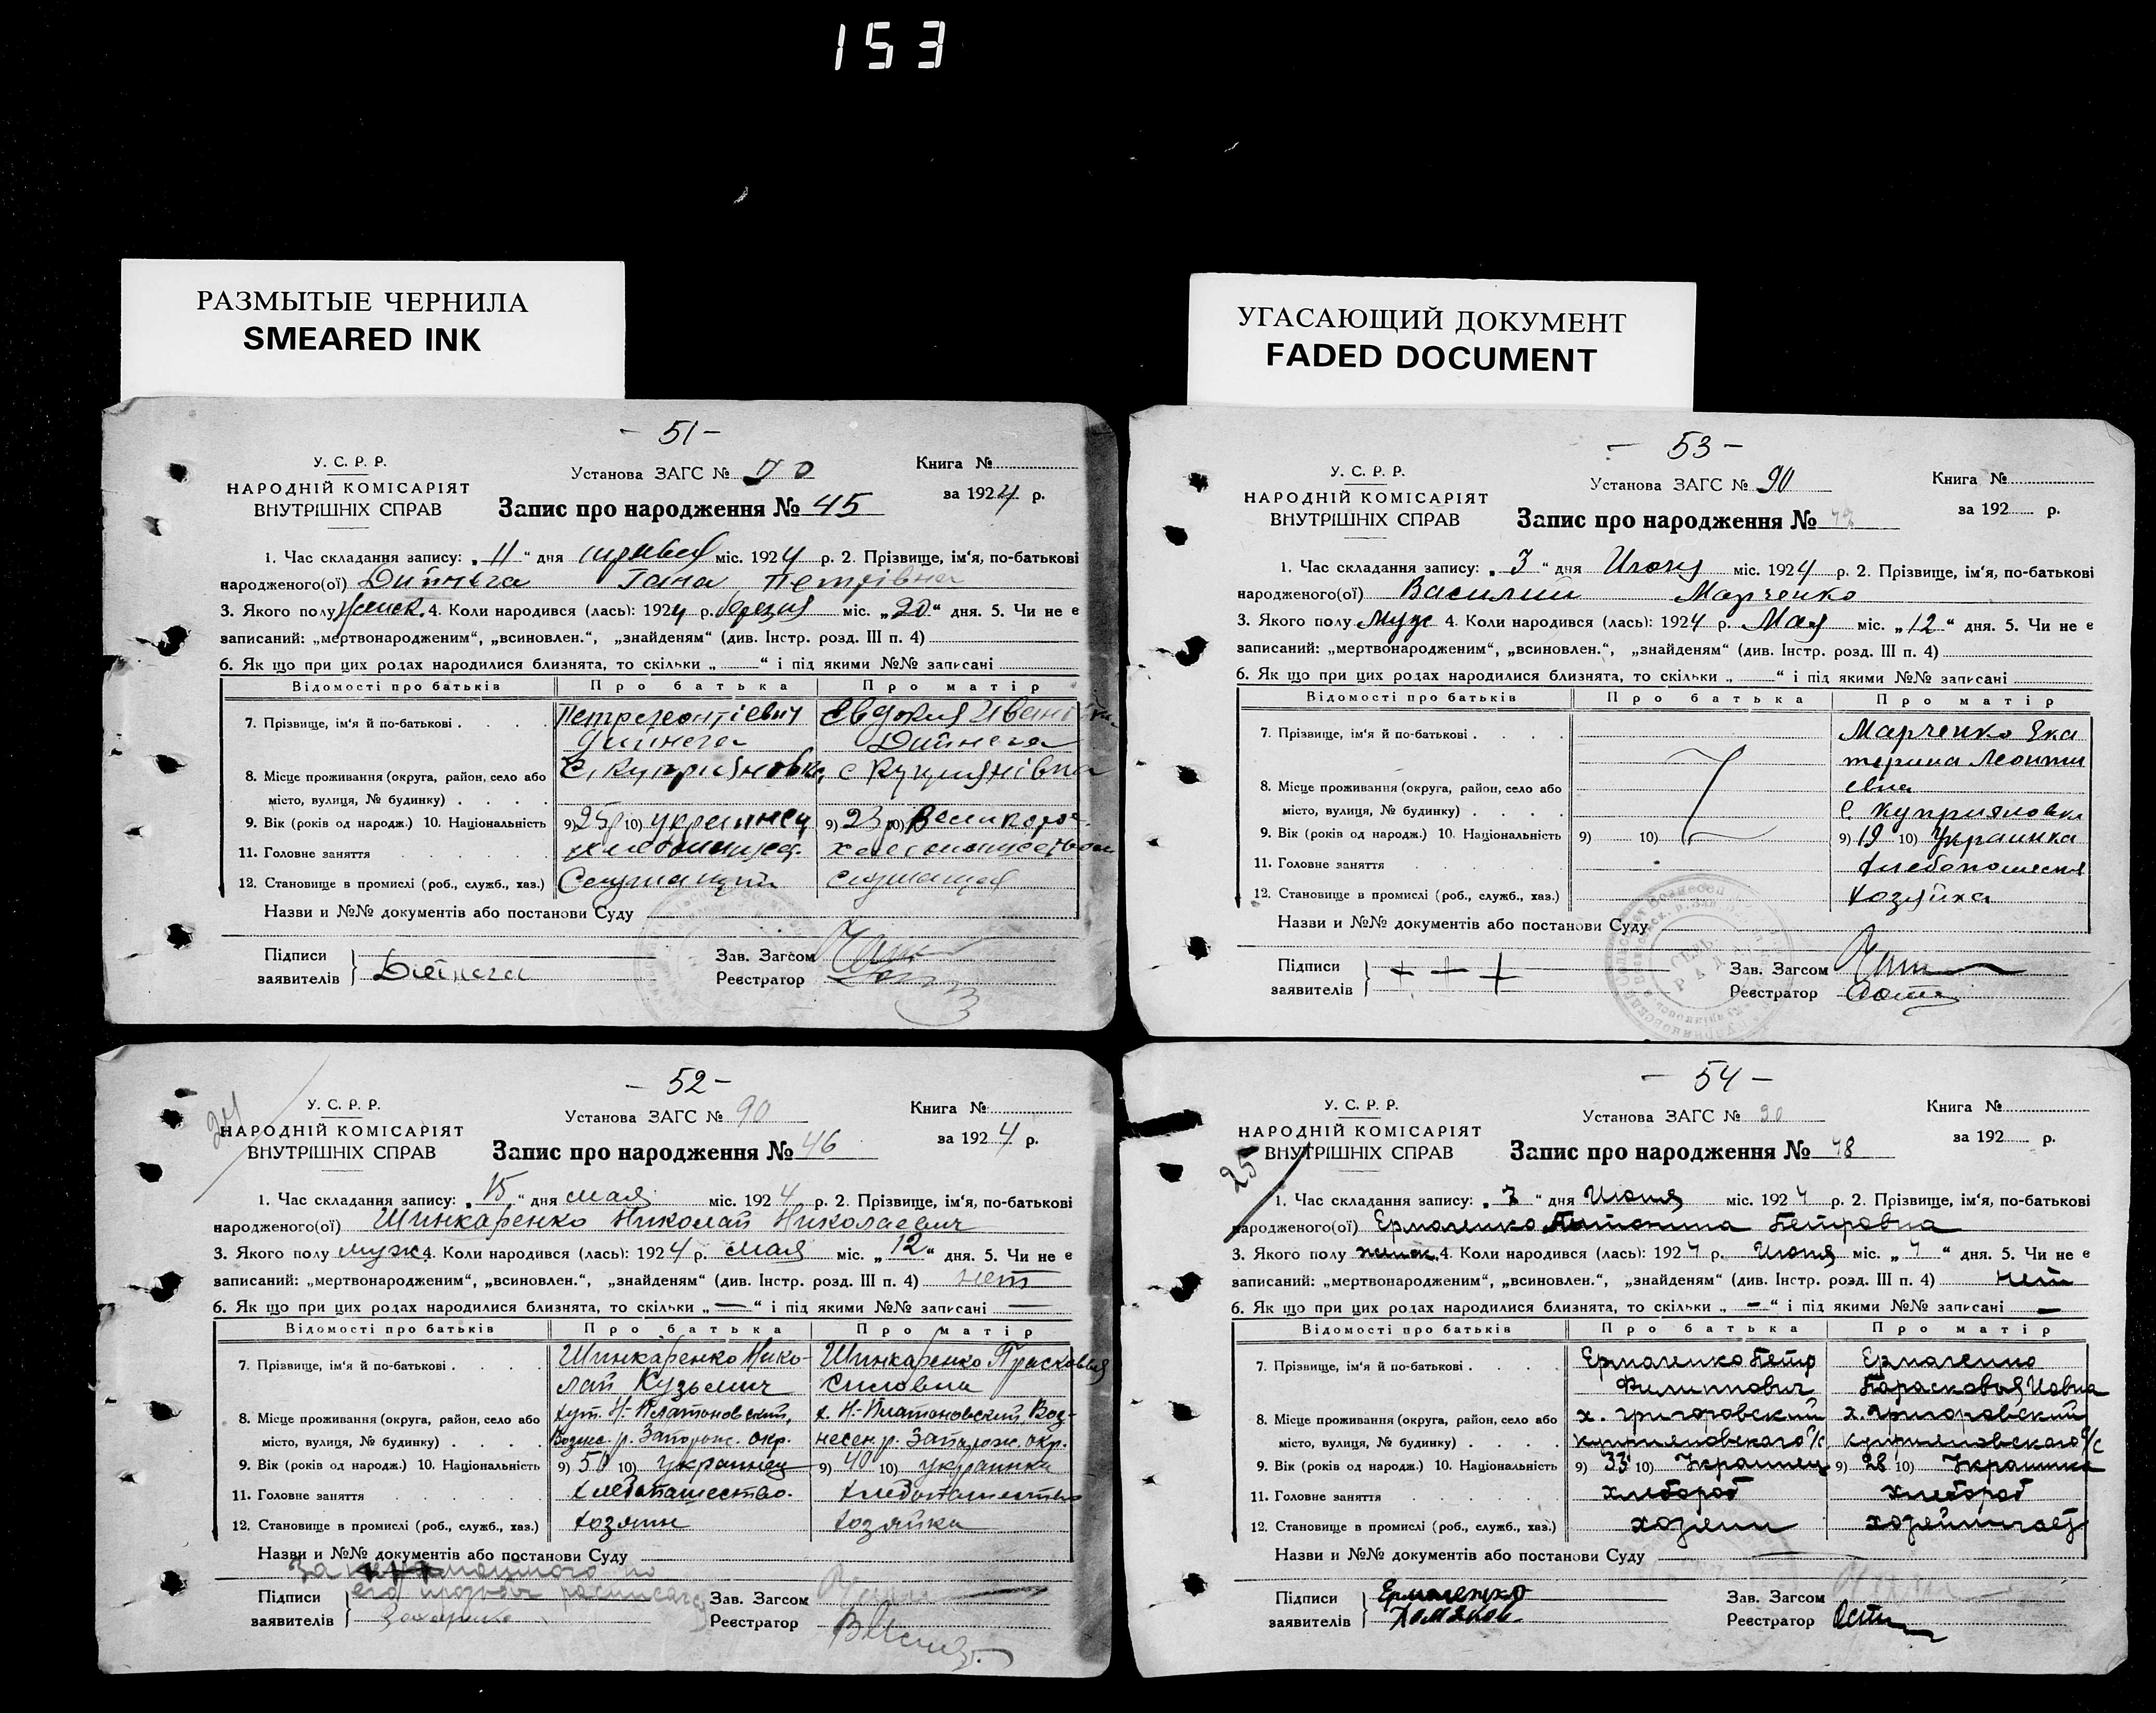 153
РАЗМЫТЫЕ ЧЕРНИЛА
SMEARED INK
УГАСАЮЩИЙ ДОКУМЕНТ
FADED DOCUMENT
- 51 -
У. С. Р. Р.
НАРОДНІЙ КОМІСАРІЯТ
ВНУТРІШНІХ СПРАВ
Установа ЗАГС №
Книга №
Запис про народження № 45
за 1924 р.
1. Час складання запису: „ 11 “ дня травня міс. 1924 р. 2. Прізвище, ім‘я, по-батькові
народженого(ої) Дийнега Гана Петрівна
3. Якого полу женск. 4. Коли народився (лась): 1924 р. березня міс. „ 20 “ дня. 5. Чи не є
записаний: „мертвонародженим“, „всиновлен.“, „знайденям“ (див. Інстр. розд. III п. 4)
6. Як що при цих родах народилися близнята, то скільки „ “ і під якими №№ записані
Відомості про батьків Про батька Про матір
7. Прізвище, ім‘я й по-батькові Петро Леонтієвич Євдокия
Дийнега Дийнега
8. Місце проживання (округа, район, село або С. Куприяновка с Куприянівка
місто, вулиця, № будинку)
9. Вік (років од народж.) 10. Національність 9) 25 10) украинец 9) 23 10)
11. Головне заняття
12. Становище в промислі (роб., служб., хаз.)
Назви и №№ документів або постанови Суду
Підписи
заявителів Дийнега
Зав. Загсом
Реєстратор
- 53 -
У. С. Р. Р.
НАРОДНІЙ КОМІСАРІЯТ
ВНУТРІШНІХ СПРАВ
Установа ЗАГС № 90
Книга №
Запис про народження №
за 192 р.
1. Час складання запису: „ 3 “ дня Июня міс. 1924 р. 2. Прізвище, ім‘я, по-батькові
народженого(ої) Василий Марченко
3. Якого полу муж 4. Коли народився (лась): 1924 р. Мая міс. „ 12 “ дня. 5. Чи не є
записаний: „мертвонародженим“, „всиновлен.“, „знайденям“ (див. Інстр. розд. III п. 4)
6. Як що при цих родах народилися близнята, то скільки „ “ і під якими №№ записані
Відомості про батьків Про батька Про матір
7. Прізвище, ім‘я й по-батькові Марченко Ека
терина Леонти
8. Місце проживання (округа, район, село або евна
місто, вулиця, № будинку) С Куприяновка
9. Вік (років од народж.) 10. Національність 9) 10) 9) 19 10) Украинка
11. Головне заняття
12. Становище в промислі (роб., служб., хаз.) хозяйка
Назви и №№ документів або постанови Суду
Підписи
заявителів + + +
Зав. Загсом
Реєстратор
- 52 -
У. С. Р. Р.
НАРОДНІЙ КОМІСАРІЯТ
ВНУТРІШНІХ СПРАВ
24
Установа ЗАГС № 90
Книга №
Запис про народження № 46
за 1924 р.
1. Час складання запису: „ 15 “ дня мая міс. 1924 р. 2. Прізвище, ім‘я, по-батькові
народженого(ої) Шинкаренко Николай Николаевич
3. Якого полу муж 4. Коли народився (лась): 1924 р. мая міс. „ 12 “ дня. 5. Чи не є
записаний: „мертвонародженим“, „всиновлен.“, „знайденям“ (див. Інстр. розд. III п. 4) нет
6. Як що при цих родах народилися близнята, то скільки „ — “ і під якими №№ записані —
Відомості про батьків Про батька Про матір
7. Прізвище, ім‘я й по-батькові Шинкаренко Нико- Шинкаренко Прасковья
лай Кузьмич
8. Місце проживання (округа, район, село або хут. Н-Платоновский, х. Н-Платоновский, Воз-
місто, вулиця, № будинку) Вознес. р. Запорож. окр. несен. р. Запорож. окр.
9. Вік (років од народж.) 10. Національність 9) 50 10) украинец 9) 40 10) украинка
11. Головне заняття хлебопашество. хлебопашество
12. Становище в промислі (роб., служб., хаз.) хозяин хозяйка
Назви и №№ документів або постанови Суду
За неграмотного по
его просьбе расписался
Підписи
заявителів
Зав. Загсом
Реєстратор
- 54 -
У. С. Р. Р.
НАРОДНІЙ КОМІСАРІЯТ
ВНУТРІШНІХ СПРАВ
25
Установа ЗАГС № 90
Книга №
Запис про народження № 48
за 192 р.
1. Час складання запису: „ 7 “ дня Июня міс. 1924 р. 2. Прізвище, ім‘я, по-батькові
народженого(ої) Ермоленко Антонина Петровна
3. Якого полу 4. Коли народився (лась): 1924 р. Июня міс. „ 4 “ дня. 5. Чи не є
записаний: „мертвонародженим“, „всиновлен.“, „знайденям“ (див. Інстр. розд. III п. 4) нет
6. Як що при цих родах народилися близнята, то скільки „ — “ і під якими №№ записані —
Відомості про батьків Про батька Про матір
7. Прізвище, ім‘я й по-батькові Ермоленко Петр Ермоленко
Филиппович Парасковья Иовна
8. Місце проживання (округа, район, село або х. Григоровский х. Григоровский
місто, вулиця, № будинку) Куприяновского с/с Куприяновского с/с
9. Вік (років од народж.) 10. Національність 9) 33 10) Украинец 9) 28 10) Украинка
11. Головне заняття хлебороб хлебороб
12. Становище в промислі (роб., служб., хаз.) хозяин
Назви и №№ документів або постанови Суду
Підписи Ермоленко
заявителів
Зав. Загсом
Реєстратор